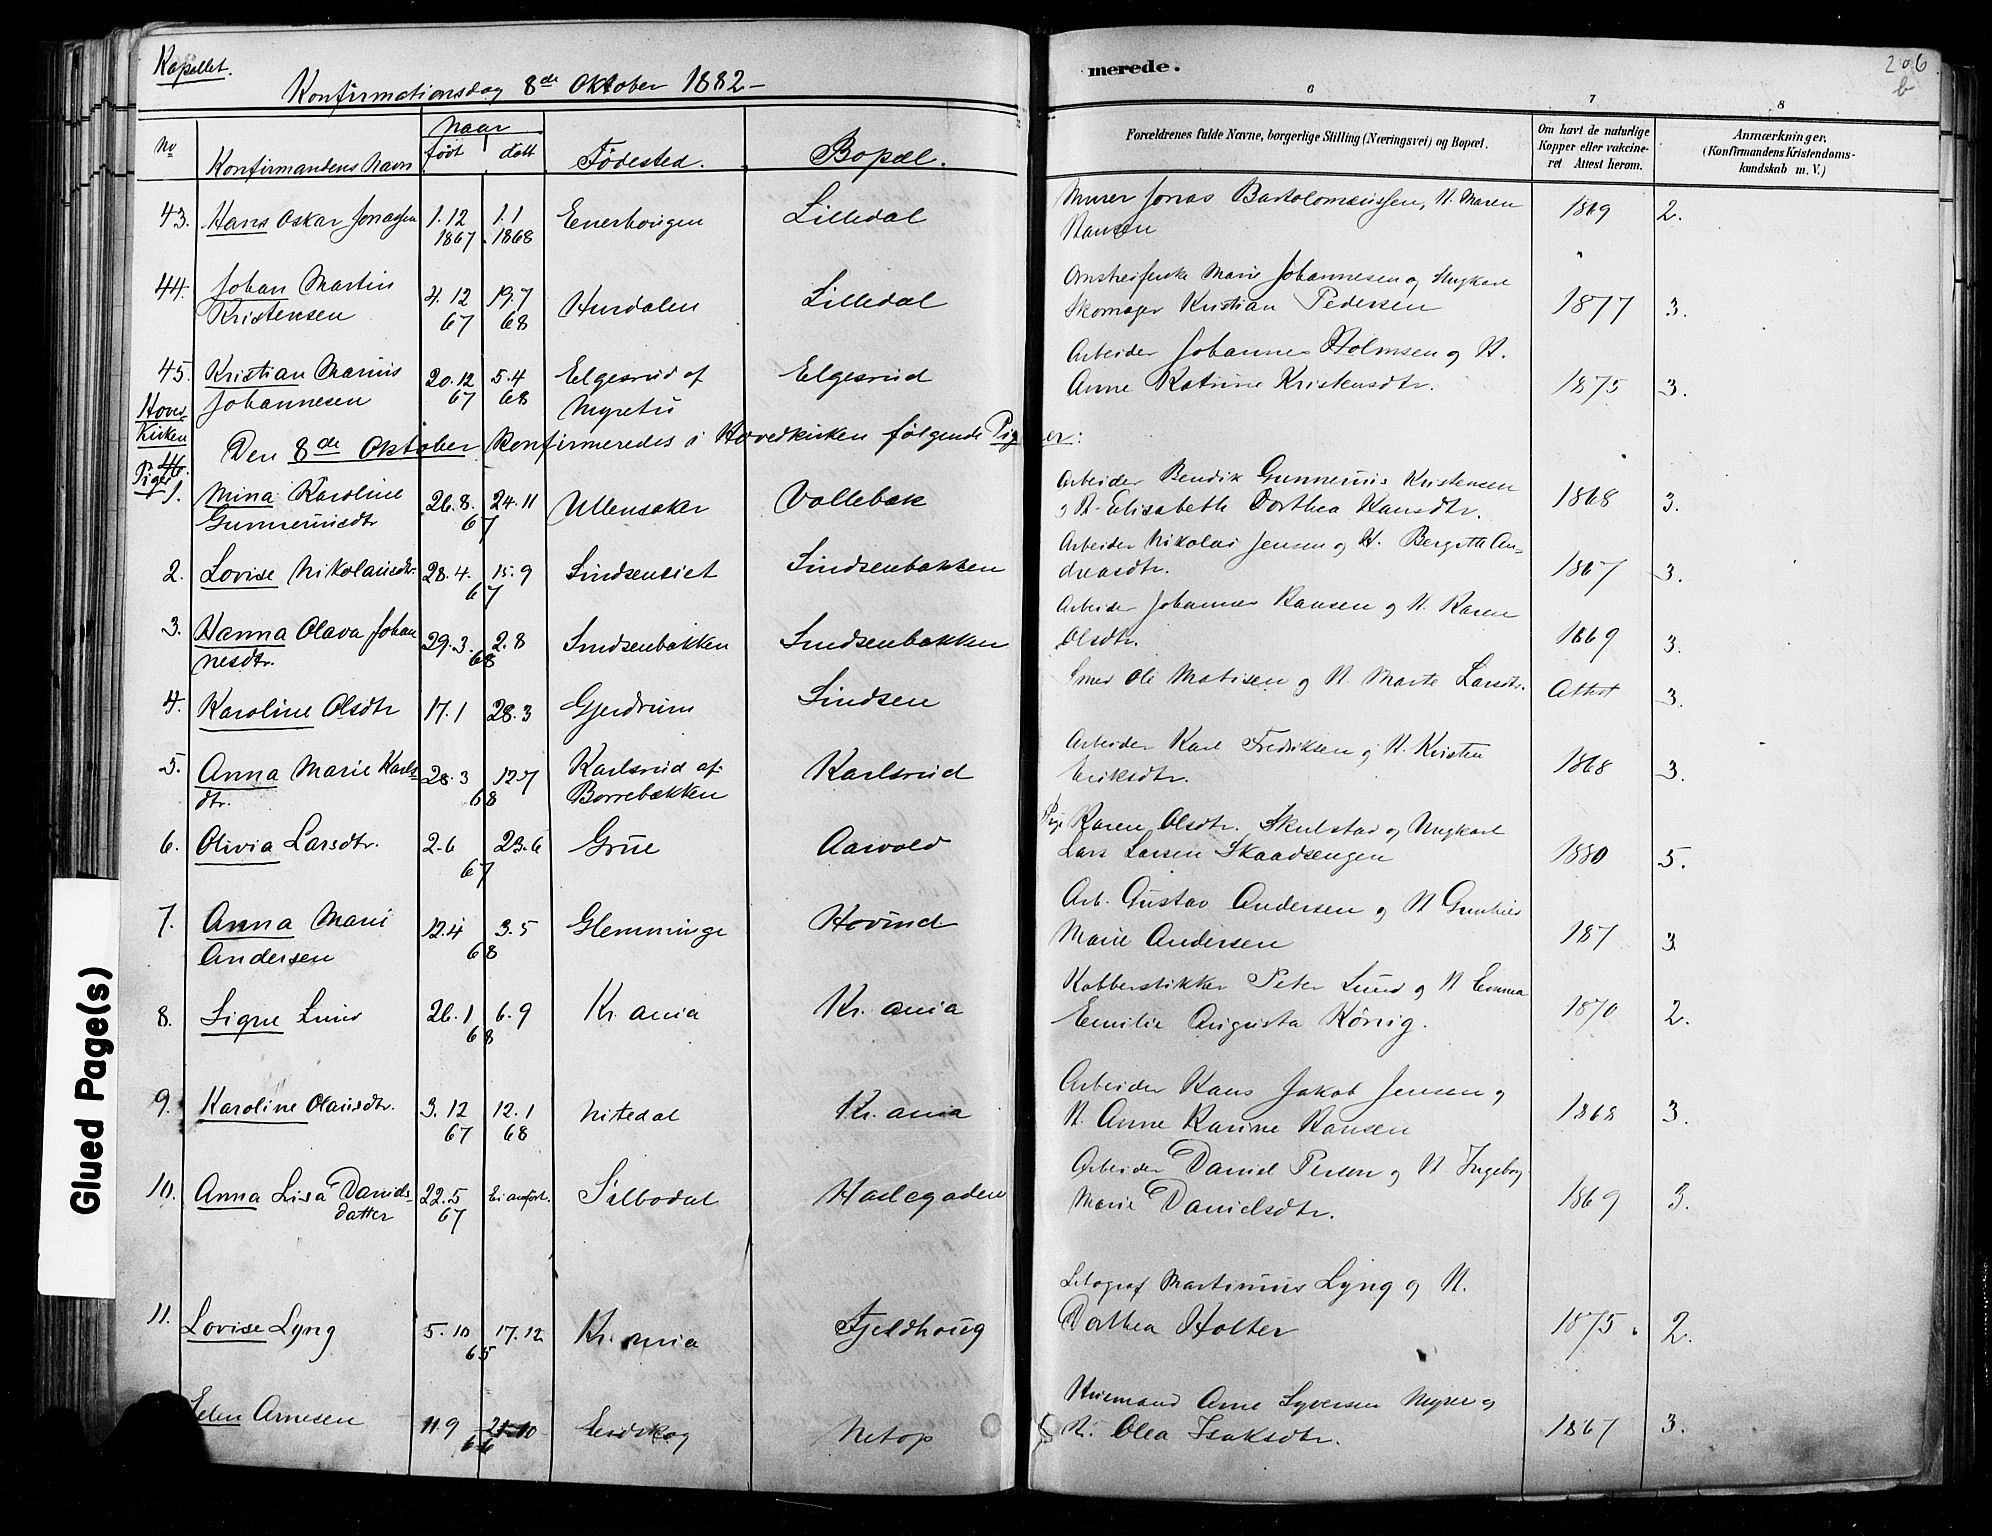 Kapellet.
Konfirmationsdag 8de Oktober 1882 –
merede.
206
b
6
7
8
No
Konfirmandens Navn
Naar
født
døbt
Fødested.
Bopæl.
Forældrenes fulde Navne, borgerlige Stilling (Næringsvei) og Bopæl.
Om havt de naturlige
Kopper eller vakcine-
ret Attest herom.
Anmærkninger.
(Konfirmandens Kristendoms-
kundskab m. V.)
43. Hans Oskar Jonassen 1.12 1.1 Enerhougen Lilledal Murer Jonas Bartolomæussen, H. Maren 1869 2.
1867 1868 Hansen
44. Johan Martin 4.12 19.7 Hurdalen Lilledal Marie Johannesen og Ungkarl
Kristensen 67 68 Skomager Kristian Pedersen 1877 3.
45. Kristian Marius 20.12 5.4 Elgesrud af Elgesrud Arbeider Johannes Holmsen og H.
Johannesen 67 68 Anne Katrine Kristensdtr. 1875 3.
Hoved
Kirken
Den 8de Oktober Konfirmeredes i Hovedkirken følgende Piger:
46.
Piger
1. Mina Karoline 26.8. 24.11 Ullensaker Vollebæk Arbeider Bendik Gunnerius Kristensen 1868 3.
67 og H. Elisabeth Dorthea Hansdtr.
2. Lovise Nikolaisdtr. 28.4. 15.9 Sindsenbakken Arbeider Nikolai Jensen og H. Bergitte An- 1867 3.
67 dreasdtr.
3. Hanna Olava Johan 29.3. 2.8 Sindsenbakken Sindsenbakken Arbeider Johannes Hansen og H. Karen 1869 3.
nesdtr. 68 Olsdtr.
4. Karoline Olsdtr 17.1 28.3 Gjerdrum Sindsen Smed Ole Matisen og H. Marte Larsdtr. Attest 3.
5. Anna Marie Karls- 28.3 12.7 Karlsrud af Karlsrud Arbeider Karl Fredriksen og H. Kristen 1868 3.
dtr. 68 Borrebækken Eriksdtr.
6. Olivia Larsdtr. 2.6 23.6 Grue Aarvold Pige Karen Olsdtr. Skulstad og Ungkarl
67 Lars Larsen Skaadsengen 1880 5.
7. Anna Marie 12.4 3.5 Glemminge Hovind Arb. Gustav Andersen og H Gunhild
Andersen 68 Marie Andersen 187 3
8. Signe Lund 26.1 6.9 Kr.ania Kr.ania Kobberstikker Peter Lund og H Emma
68 Emilie Augusta König. 1870 2.
9. Karoline Olausdtr. 3.12 12.1 Nittedal Kr.ania Arbeider Hans Jakob Jensen og
67 68 H. Anne Karine Hansen 1868 3.
10. Anna Lisa Daniels- 22.5 Ei anført. Silbodal Haslegaden Arbeider Daniel Person og H. Ingeborg
datter 67 Marie Danielsdtr. 1869 3.
11. Lovise Lyng 5.10 17.12 Kr.ania Fjeldhoug Litograf Martinius Lyng og H.
65 Dorthea Holter 1875 2.
Elen Arnesen 11.9 21.10 Eidskog Netop Husmand Arne Syversen Myrer og
66 H. Olea Isaksdtr. 1867 3.
Glued Page(s)